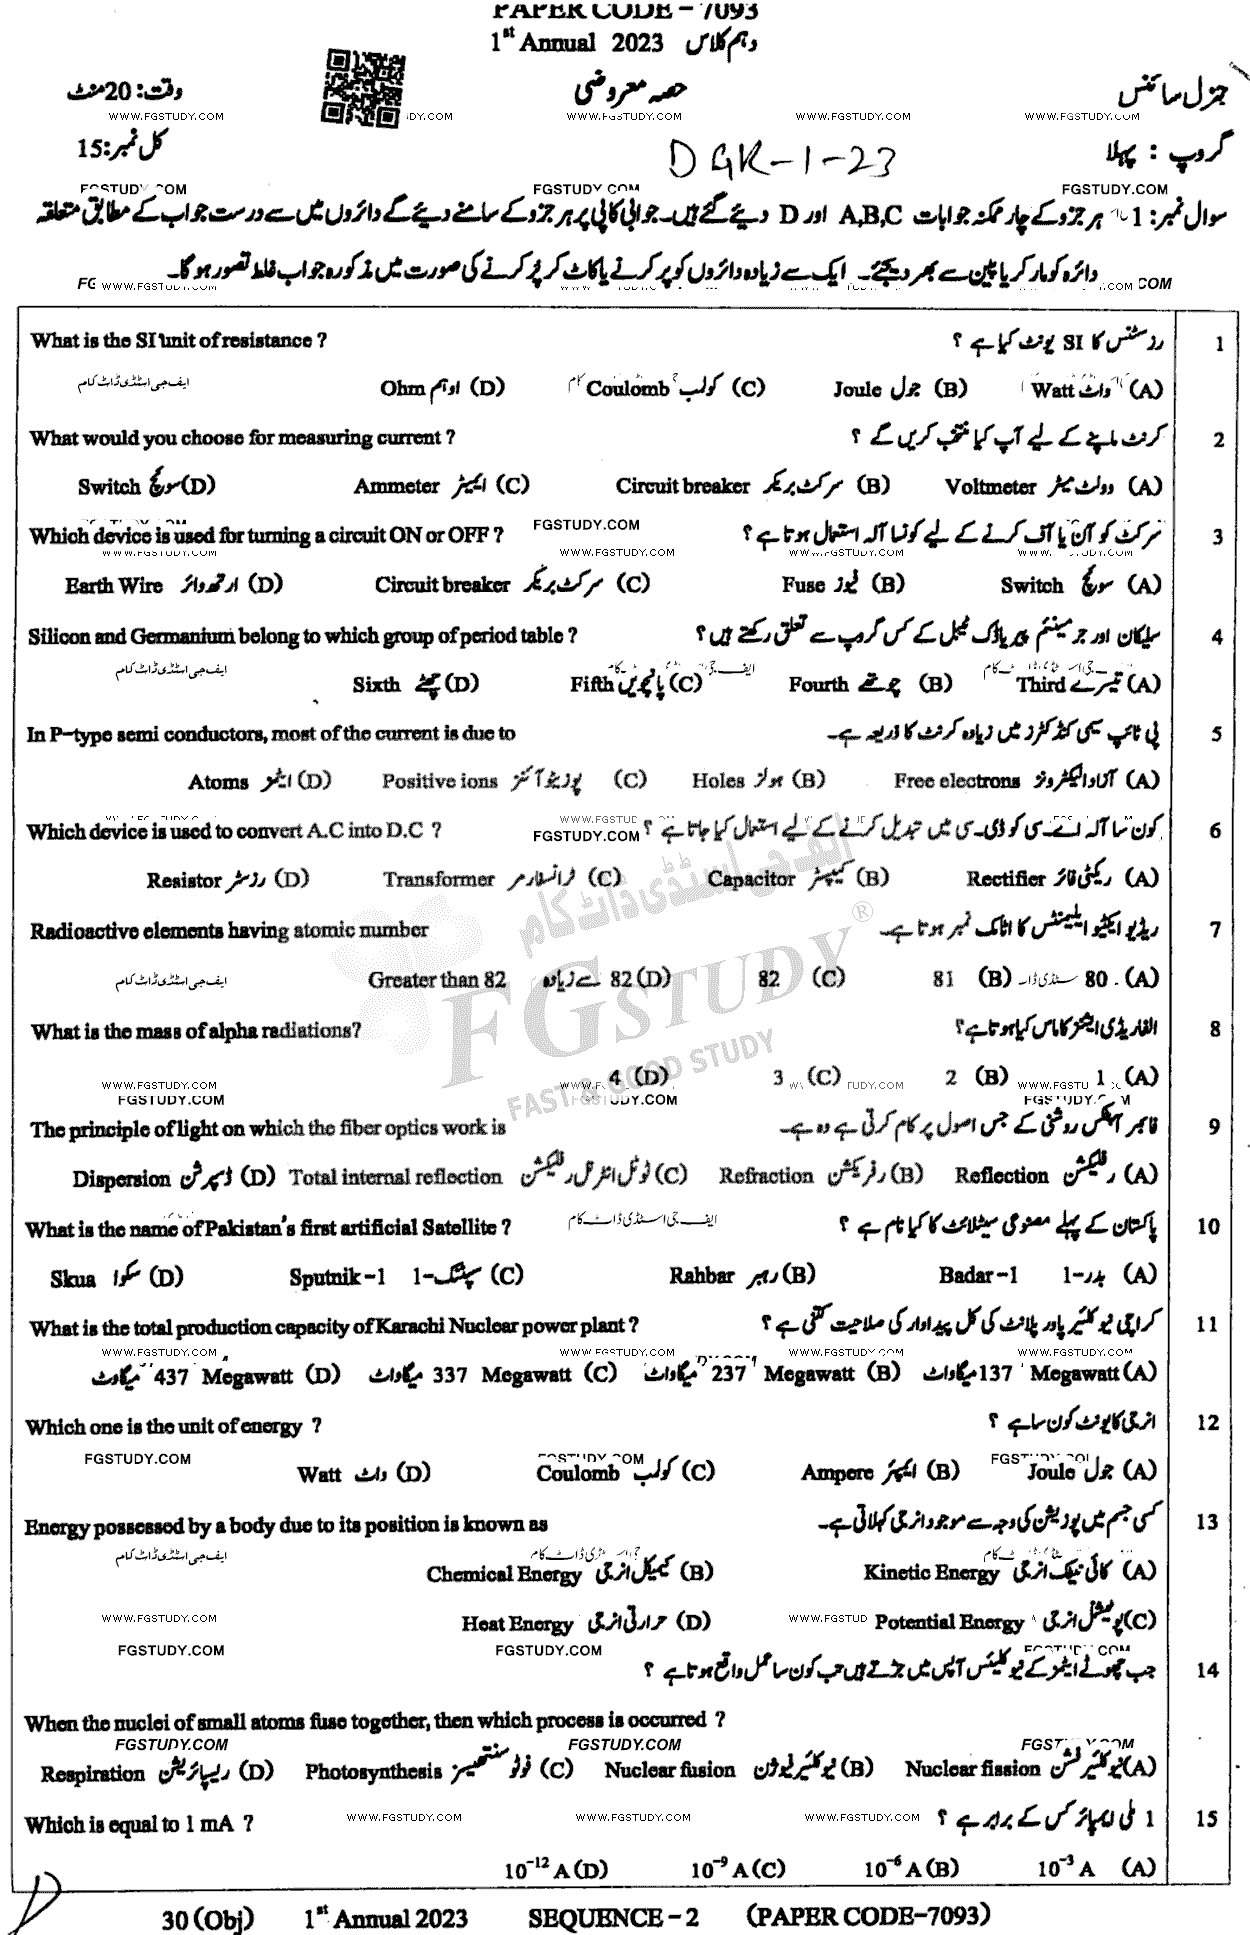 PAPER CODE - 7093
1st Annual 2023 دہم کلاس
جنرل سائنس حصہ معروضی وقت: 20 منٹ
WWW.FGSTUDY.COM WWW.FGSTUDY.COM WWW.FGSTUDY.COM WWW.FGSTUDY.COM
گروپ : پہلا DGK-1-23 کل نمبر: 15
FGSTUDY.COM FGSTUDY.COM FGSTUDY.COM
سوال نمبر: 1 ہر جزو کے چار ممکنہ جوابات A,B,C اور D دیئے گئے ہیں۔ جوابی کاپی پر ہر جزو کے سامنے دیئے گے دائروں میں سے درست جواب کے مطابق متعلقہ
دائرہ کو مارکر یا پین سے بھر دیجئے۔ ایک سے زیادہ دائروں کو پر کرنے یا کاٹ کر پُر کرنے کی صورت میں مذکورہ جواب غلط تصور ہو گا۔
What is the SI unit of resistance ? رزسٹنس کا SI یونٹ کیا ہے ؟ 1
ایف جی اسٹڈی ڈاٹ کام
Ohm اوہم (D) Coulomb کولمب (C) Joule جول (B) Watt واٹ (A)
What would you choose for measuring current ? کرنٹ ماپنے کے لیے آپ کیا منتخب کریں گے ؟ 2
Switch سوئچ (D) Ammeter ایمیٹر (C) Circuit breaker سرکٹ بریکر (B) Voltmeter وولٹ میٹر (A)
FGSTUDY.COM
Which device is used for turning a circuit ON or OFF ? سرکٹ کو آن یا آف کرنے کے لیے کونسا آلہ استعمال ہوتا ہے ؟ 3
WWW.FGSTUDY.COM WWW.FGSTUDY.COM WWW.FGSTUDY.COM WWW.FGSTUDY.COM
Earth Wire ارتھ وائر (D) Circuit breaker سرکٹ بریکر (C) Fuse فیوز (B) Switch سوئچ (A)
Silicon and Germanium belong to which group of period table ? سلیکان اور جرمینئم پیریاڈک ٹیبل کے کس گروپ سے تعلق رکھتے ہیں؟ 4
ایف جی اسٹڈی ڈاٹ کام
Sixth چھٹے (D) Fifth پانچویں (C) Fourth چوتھے (B) Third تیسرے (A)
In P-type semi conductors, most of the current is due to پی ٹائپ سیمی کنڈکٹرز میں زیادہ کرنٹ کا ذریعہ ہے۔ 5
Atoms ایٹمز (D) Positive ions پوزیٹو آئنز (C) Holes ہولز (B) Free electrons آزاد الیکٹرونز (A)
Which device is used to convert A.C into D.C ? کون سا آلہ اے۔سی کو ڈی۔سی میں تبدیل کرنے کے لیے استعمال کیا جاتا ہے ؟ 6
FGSTUDY.COM
Resistor رزسٹر (D) Transformer ٹرانسفارمر (C) Capacitor کپیسٹر (B) Rectifier ریکٹی فائر (A)
ایف جی اسٹڈی ڈاٹ کام
Radioactive elements having atomic number ریڈیو ایکٹیو ایلیمنٹس کا اٹامک نمبر ہوتا ہے۔ 7
ایف جی اسٹڈی ڈاٹ کام
Greater than 82 82 سے زیادہ (D) 82 (C) 81 (B) 80 (A)
FGSTUDY ®
What is the mass of alpha radiations? الفا ریڈی ایشنز کا ماس کیا ہوتا ہے؟ 8
4 (D) 3 (C) 2 (B) 1 (A)
FAST & GOOD STUDY
WWW.FGSTUDY.COM
FGSTUDY.COM FGSTUDY.COM
The principle of light on which the fiber optics work is فائبر آپٹکس روشنی کے جس اصول پر کام کرتی ہے وہ ہے۔ 9
Dispersion ڈسپرشن (D) Total internal reflection ٹوٹل انٹرنل رفلیکشن (C) Refraction رفریکشن (B) Reflection رفلیکشن (A)
What is the name of Pakistan's first artificial Satellite ? ایف جی اسٹڈی ڈاٹ کام پاکستان کے پہلے مصنوعی سیٹلائٹ کا کیا نام ہے ؟ 10
Skua سکوا (D) Sputnik-1 سپٹنک-1 (C) Rahbar رہبر (B) Badar-1 بدر-1 (A)
What is the total production capacity of Karachi Nuclear power plant ? کراچی نیوکلیئر پاور پلانٹ کی کل پیداوار کی صلاحیت کتنی ہے ؟ 11
WWW.FGSTUDY.COM WWW.FGSTUDY.COM WWW.FGSTUDY.COM WWW.FGSTUDY.COM
میگاوٹ 437 Megawatt (D) میگاواٹ 337 Megawatt (C) میگاواٹ 237 Megawatt (B) میگاواٹ 137 Megawatt (A)
Which one is the unit of energy ? انرجی کا یونٹ کون سا ہے ؟ 12
FGSTUDY.COM FGSTUDY.COM
Watt واٹ (D) Coulomb کولمب (C) Ampere ایمپئر (B) Joule جول (A)
Energy possessed by a body due to its position is known as کسی جسم میں پوزیشن کی وجہ سے موجود انرجی کہلاتی ہے۔ 13
ایف جی اسٹڈی ڈاٹ کام
Chemical Energy کیمیکل انرجی (B) Kinetic Energy کائی نیٹک انرجی (A)
WWW.FGSTUDY.COM
Heat Energy حرارتی انرجی (D) Potential Energy پوٹینشل انرجی (C)
FGSTUDY.COM FGSTUDY.COM FGSTUDY.COM
جب چھوٹے ایٹمز کے نیوکلیئس آپس میں جڑتے ہیں تب کون سا عمل واقع ہوتا ہے ؟ 14
When the nuclei of small atoms fuse together, then which process is occurred ?
FGSTUDY.COM FGSTUDY.COM FGSTUDY.COM
Respiration ریسپائریشن (D) Photosynthesis فوٹو سنتھیسز (C) Nuclear fusion نیوکلیئر فیوژن (B) Nuclear fission نیوکلیئر فشن (A)
Which is equal to 1 mA ? WWW.FGSTUDY.COM WWW.FGSTUDY.COM WWW.FGSTUDY.COM 1 ملی ایمپائر کس کے برابر ہے ؟ 15
10⁻¹² A (D) 10⁻⁹ A (C) 10⁻⁶ A (B) 10⁻³ A (A)
30 (Obj) 1st Annual 2023 SEQUENCE - 2 (PAPER CODE-7093)